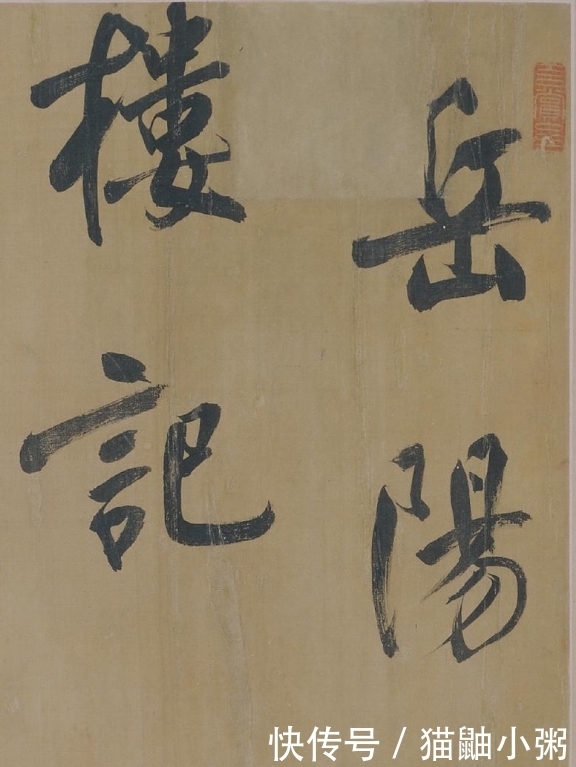 岳陽
樓記
快传号 / 猫鼬小粥